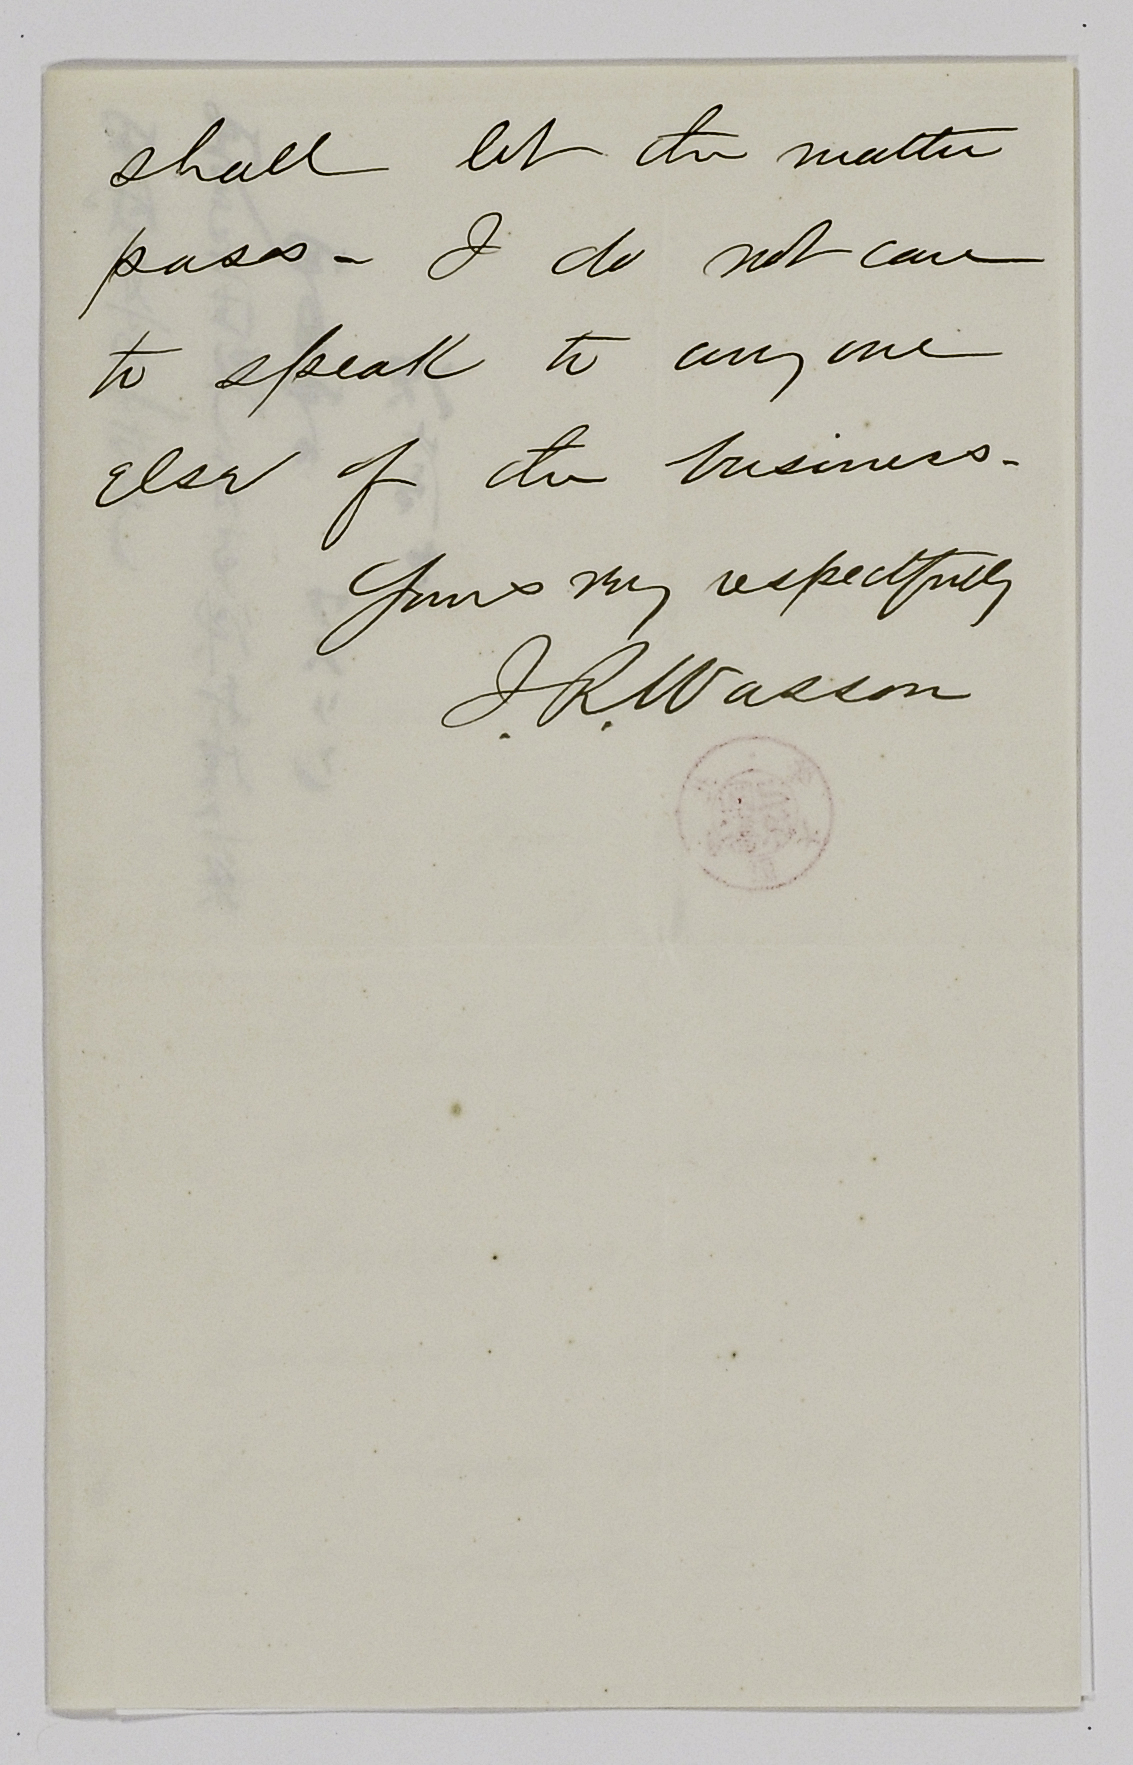 shall let the matter
pass - I do not care
to speak to any one
else of the business -
Yours very respectfully
J. R. Wasson